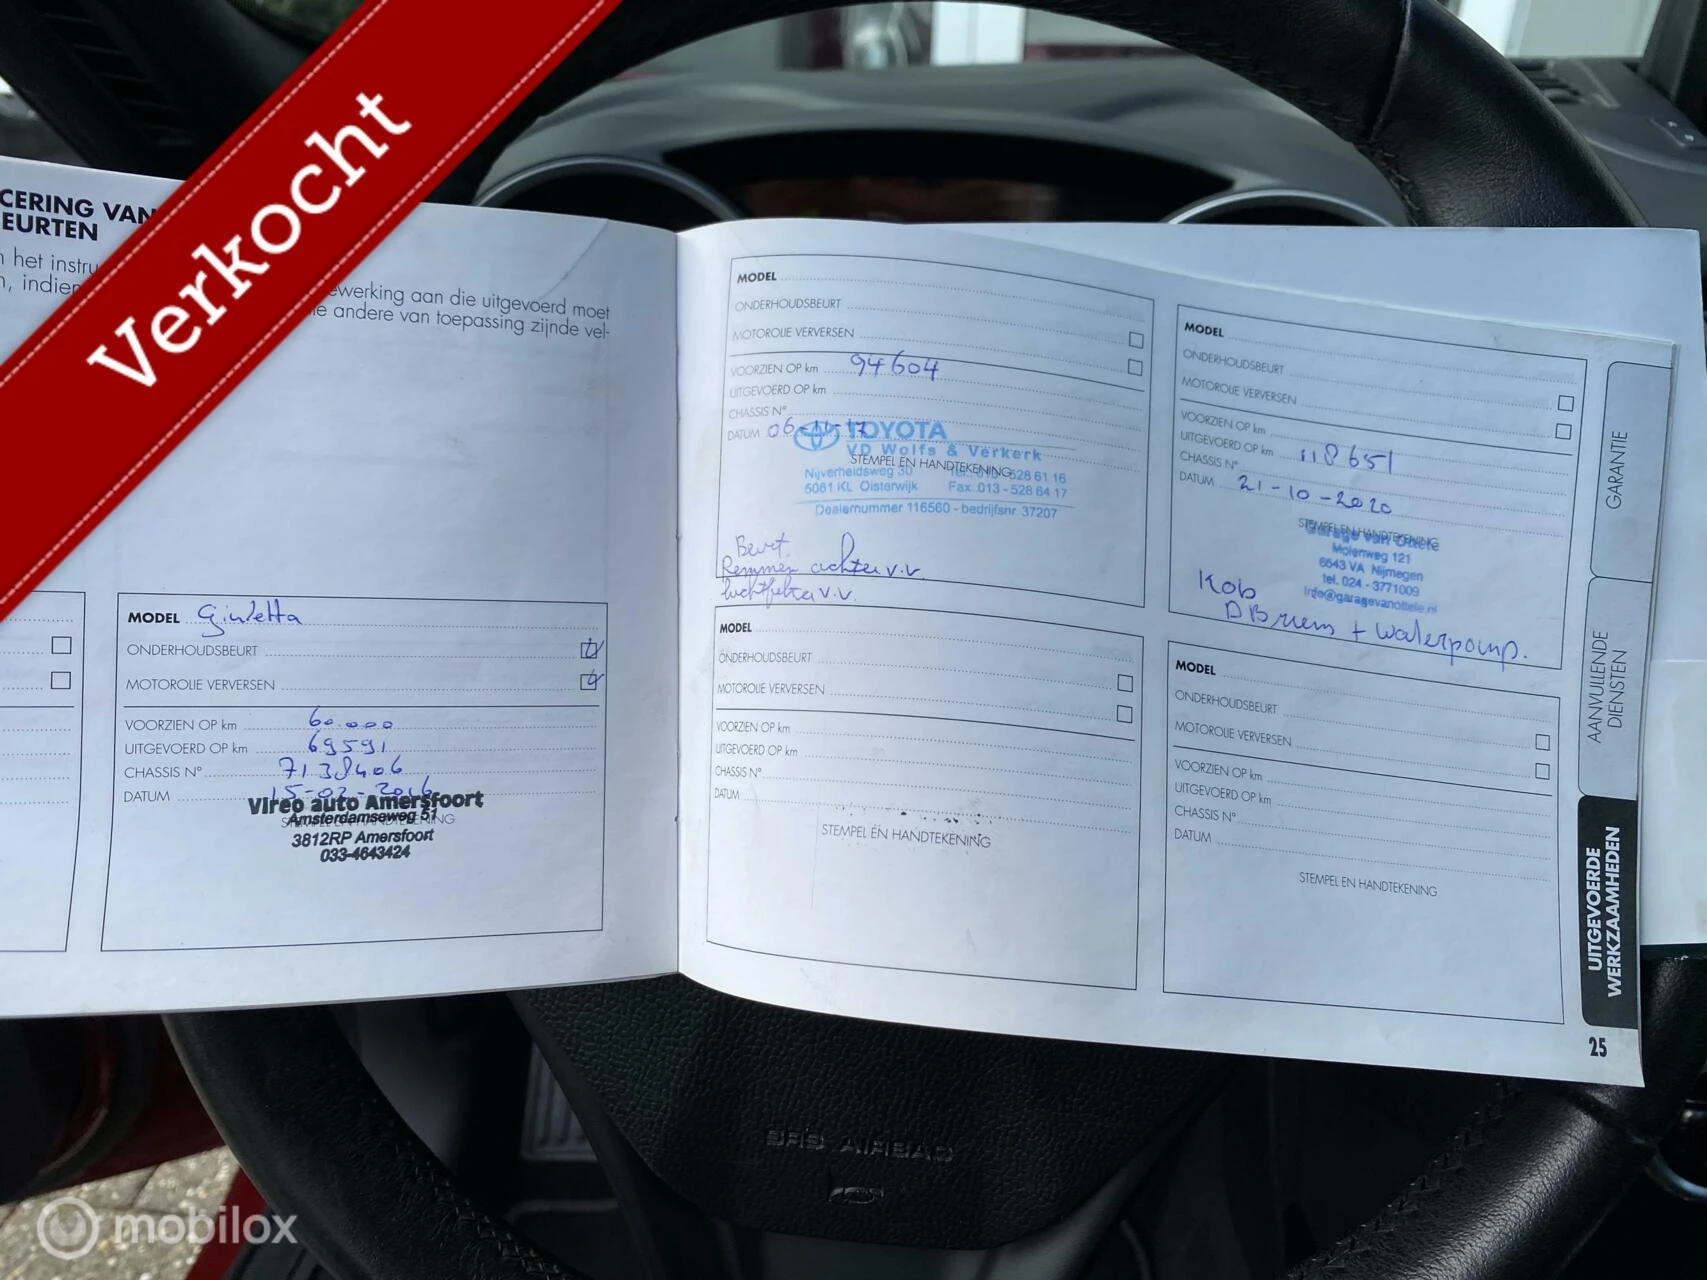 Verkocht
CERING VAN
EURTEN
het instru
, indien
ewerking aan die uitgevoerd moet
andere van toepassing zijnde vel-
MODEL Giuletta
ONDERHOUDSBEURT
MOTOROLIE VERVERSEN
VOORZIEN OP km 60.000
UITGEVOERD OP km 69591
CHASSIS N° 7138406
DATUM 15-02-2016
Vireo auto Amersfoort
Amsterdamseweg 51
STEMPEL EN HANDTEKENING
3812RP Amersfoort
033-4643424
MODEL
ONDERHOUDSBEURT
MOTOROLIE VERVERSEN
VOORZIEN OP km 94604
UITGEVOERD OP km
CHASSIS N°
DATUM 06-11-17
TOYOTA
VD Wolfs & Verkerk
STEMPEL EN HANDTEKENING
Nijverheidsweg 30 528 61 16
5061 KL Oisterwijk Fax: 013 - 528 64 17
Dealernummer 116560 - bedrijfsnr. 37207
Beurt
Remmen achter v.v.
luchtfilter v.v.
MODEL
ONDERHOUDSBEURT
MOTOROLIE VERVERSEN
VOORZIEN OP km
UITGEVOERD OP km
CHASSIS N°
DATUM
STEMPEL EN HANDTEKENING
MODEL
ONDERHOUDSBEURT
MOTOROLIE VERVERSEN
VOORZIEN OP km
UITGEVOERD OP km 118651
CHASSIS N°
DATUM 21-10-2020
STEMPEL EN HANDTEKENING
Garage van
Molenweg 121
6543 VA Nijmegen
tel. 024 - 3771009
Kob
DBriem + Waterpomp.
MODEL
ONDERHOUDSBEURT
MOTOROLIE VERVERSEN
VOORZIEN OP km
UITGEVOERD OP km
CHASSIS N°
DATUM
STEMPEL EN HANDTEKENING
GARANTIE
AANVULLENDE
DIENSTEN
UITGEVOERDE
WERKZAAMHEDEN
25
SRS AIRBAG
mobilox